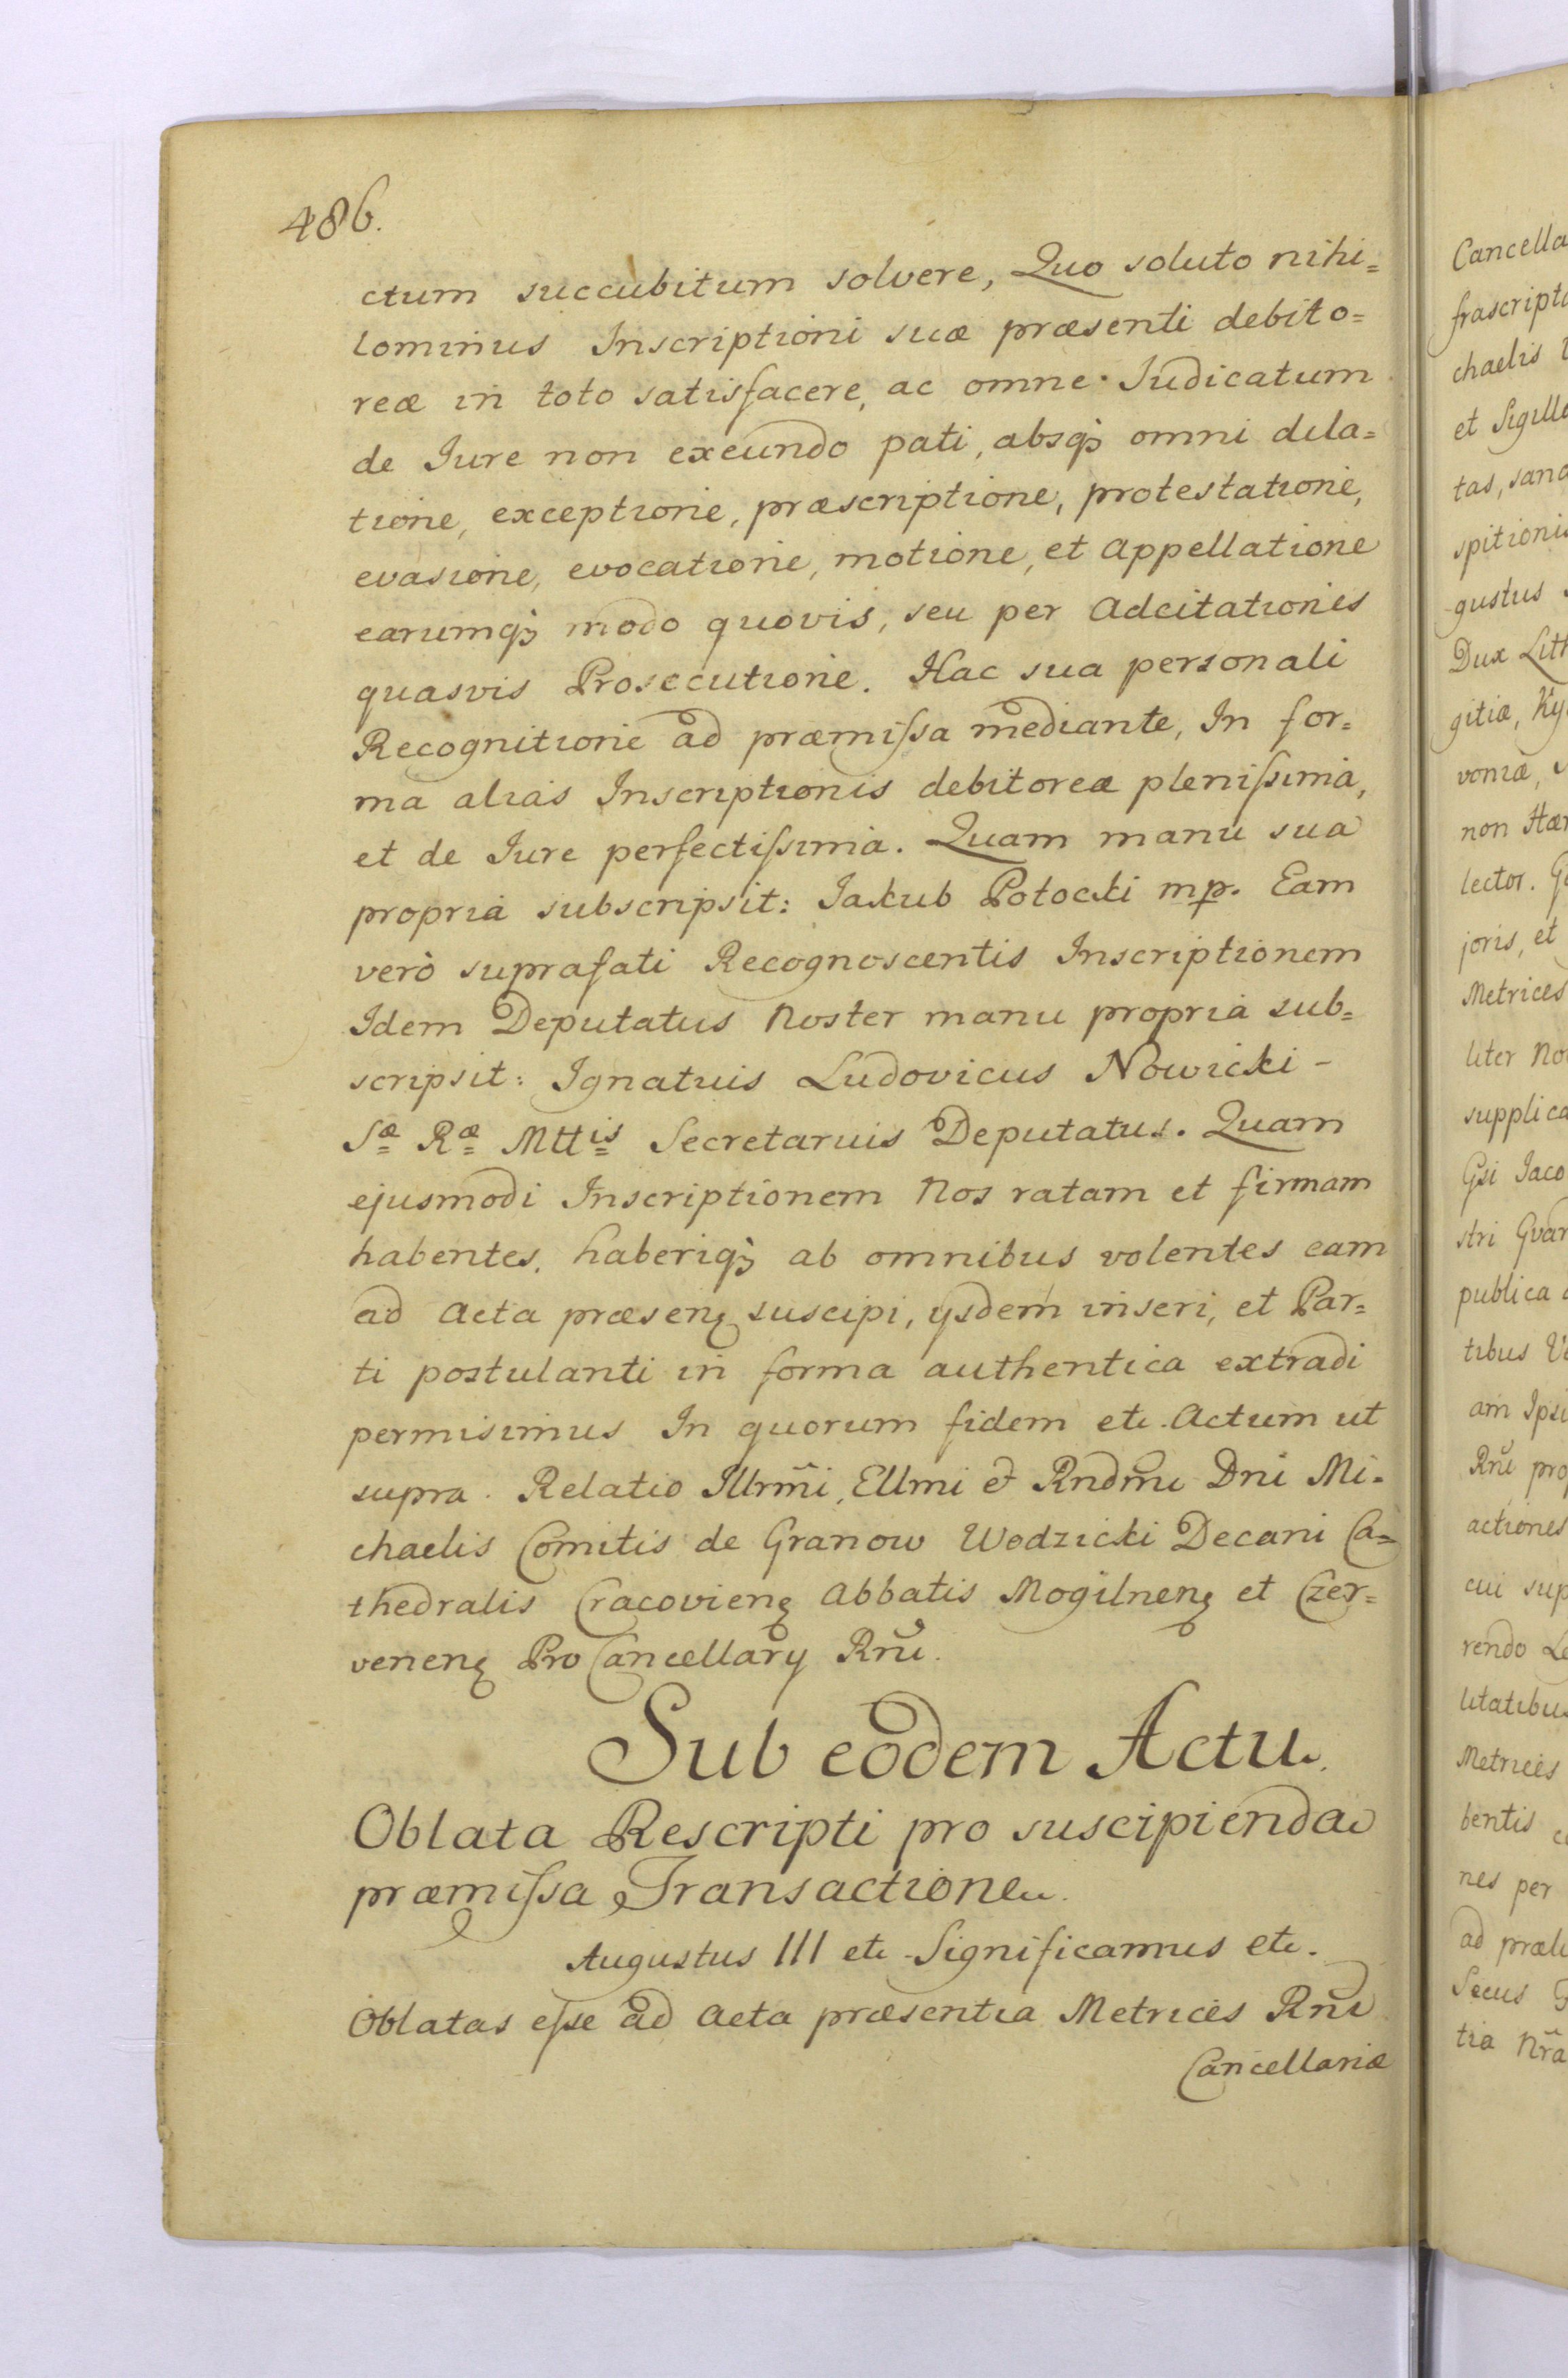 486.
ctum succubitum solvere, Quo soluto nihi=
lominus Inscriptioni suæ præsenti debito=
reæ in toto satisfacere, ac omne Iudicatum
de Iure non exeundo pati, absqꝫ omni dila=
tione, exceptione, præscriptione, protestatione,
evasione, evocatione, motione, et Appellatione
earumqꝫ modo quovis, seu per Adcitationes
quasvis Prosecutione. Hac sua personali
Recognitione ad præmiſsa mediante, In for=
ma alias Inscriptionis debitoreæ pleniſsima,
et de Iure perfectiſsima. Quam manu sua
propria subscripsit: Jakub Potocki mp. Eam
verò suprafati Recognoscentis Inscriptionem
Idem Deputatus Noster manu propria sub=
scripsit: Ignatius Ludovicus Nowicki -
Sæ Ræ Mttis Secretarius Deputatus. Quam
ejusmodi Inscriptionem Nos ratam et firmam
habentes, haberiqꝫ ab omnibus volentes eam
ad Acta præsenꝫ suscipi, ijsdem inseri, et Par=
ti postulanti in forma authentica extradi
permisimus In quorum fidem etc. Actum ut
supra. Relatio Illrm̃i, Ellmi & Rndm̃i Dni Mi=
chaelis Comitis de Granow Wodzicki Decani Ca=
thedralis Cracovienꝫ Abbatis Mogilnenꝫ et Czer=
venenꝫ Pro Cancellarij Rnĩ.
Sub eodem Actu.
Oblata Rescripti pro suscipienda
præmiſsa Transactione.
Augustus III etc. Significamus etc.
Oblatas eſse ad Acta præsentia Metrices Rnĩ
Cancellariæ
Cancella
frascripta
chaelis
et Sigill
tas, san
spitionis
gustus
Dux Lith
gitiæ, Ky
voniæ,
non Hær
lector. G
joris, et
Metrices
liter No
supplica
Gsi Jaco
stri Gvar
publica
tibus V
am Ips
Rnĩ pro
actiones
cui sup
rendo Le
litatibus
Metrices
bentis
nes per
ad præli
Secus
tia Nr̃a